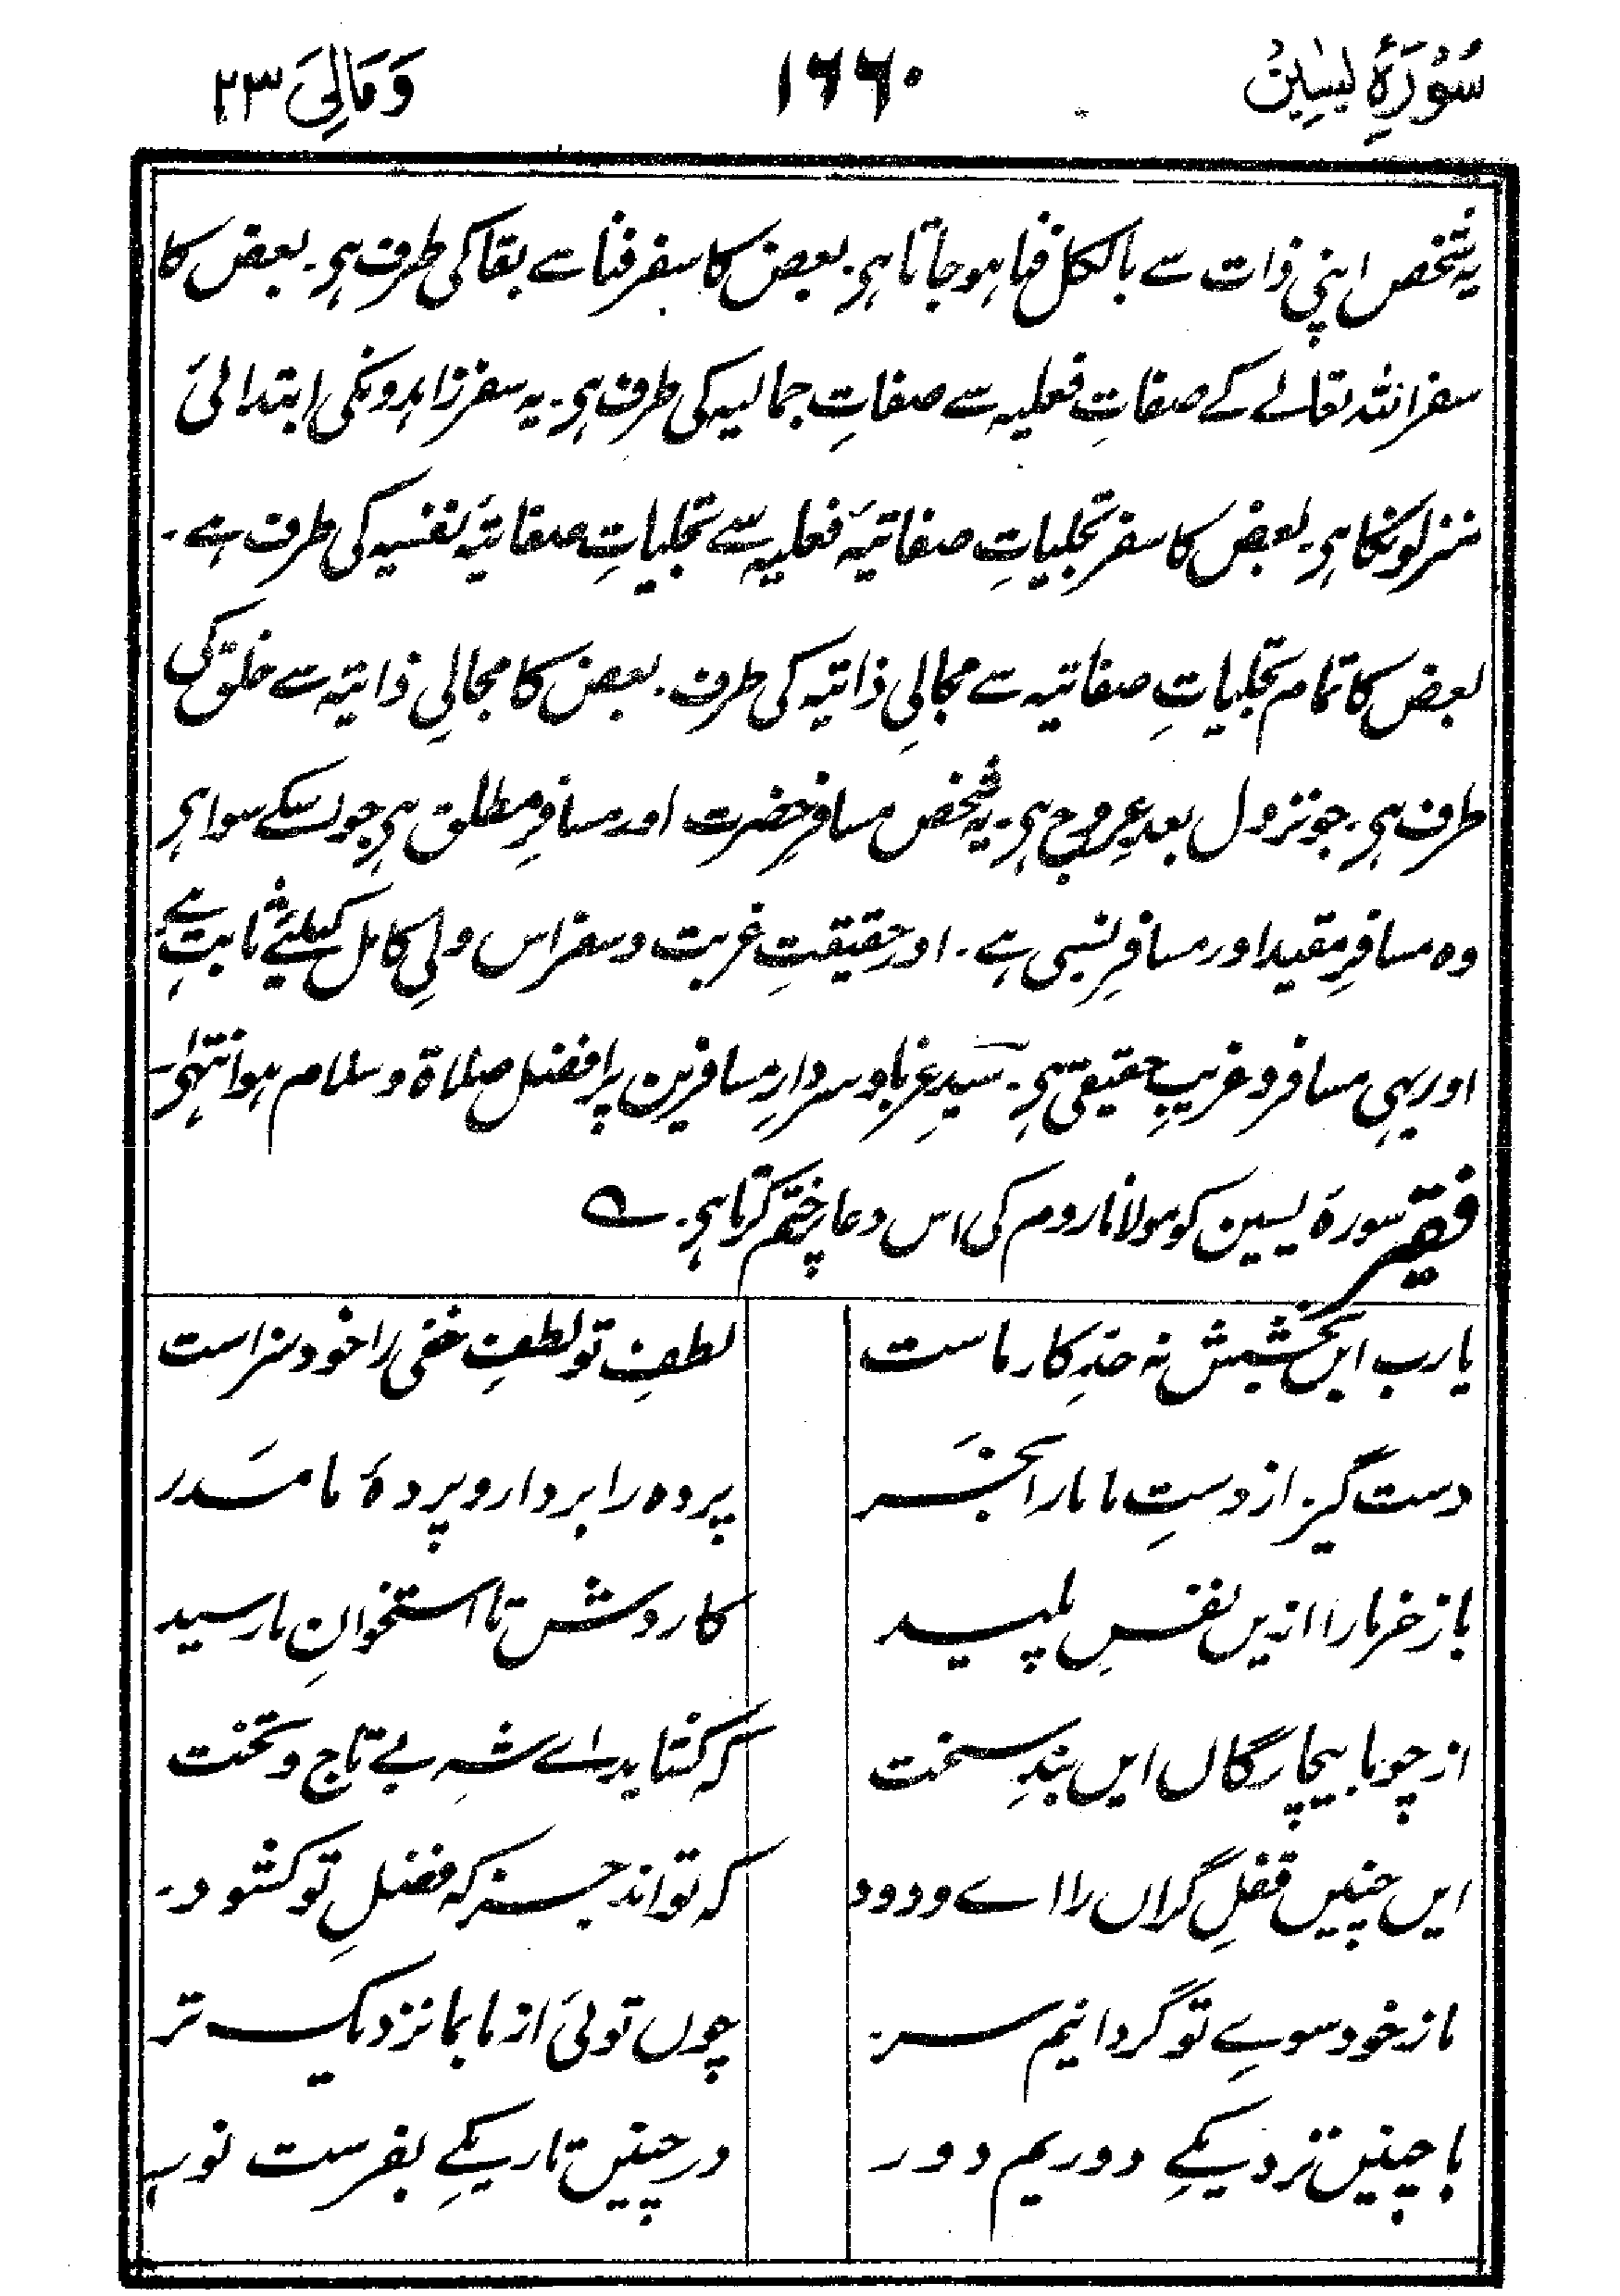 سُوْرَۂ یٰسِیْن
۱۶۶۰
وَمَالِیَ ۲۳
یہ شخص اپنی ذات سے بالکل فنا ہوجاتا ہی۔ بعض کا سفر فنا سے بقا کی طرف ہی۔ بعض کا
سفر اللہ تعالے کے صفاتِ فعلیہ سے صفاتِ جمالیہ کی طرف ہی۔ یہ سفر زاہدونکی ابتدائی
منزلونکا ہی۔ بعض کا سفر تجلیاتِ صفاتیۂ فعلیہ سے تجلیاتِ صفاتیۂ نفسیہ کی طرف ہے۔
بعض کا تمام تجلیاتِ صفاتیہ سے مجالیِ ذاتیہ کی طرف۔ بعض کا مجالیِ ذاتیہ سے خلق کی
طرف ہی۔ جو نزول بعدِ عروج ہی۔ یہ شخص مسافرِ حضرت اور مسافرِ مطلق ہی جو اسکے سوا ہی
وہ مسافرِ مقید اور مسافرِ نسبی ہے۔ اور حقیقتِ غربت و سفر اس ولیِ کامل کیلئے ثابت ہے
اور یہی مسافر و غریبِ حقیقی ہی۔ سیدِ غربا و سردارِ مسافرین پر افضل صلاة و سلام ہو انتہٰی۔
فقیر سورۂ یسین کو مولانا روم کی اس دعا پر ختم کرتا ہی۔ ؎
یارب ایں بخشش نہ حدِ کار ماست
لطفِ تو لطفِ خفی را خود سزاست
دست گیر از دستِ ما مارا بخَر
پردہ را بردار و پردۂ ما مَدر
باز خر مارا ازیں نفسِ پلید
کاردش تا استخوانِ ما رسید
از چو ما بیچارگاں ایں بندِ سخت
کہ کشاید اے شہِ بے تاج و تخت
ایں چنیں قفلِ گراں را اے ودود
کہ تواند جز کہ فضلِ تو کشود۔
ما ز خود سوے تو گردانیم سر۔
چوں توئی از ما بما نزدیک تر
با چنیں نزدیکیے دوریم دور
در چنیں تاریکیے بفرست نور